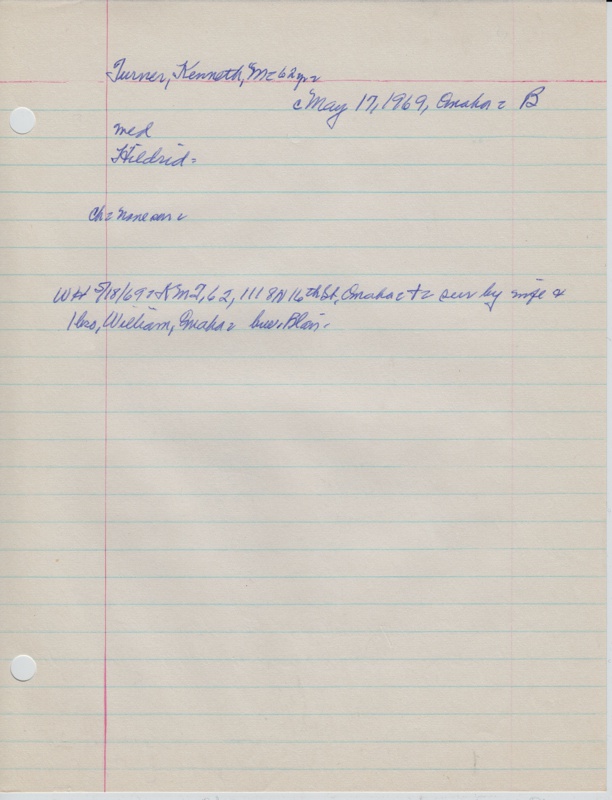 Turner, Kenneth, M=62yr=
May 17, 1969, Omaha = B
med
Hildrid=
Ch=
WH 5/18/69=KMT, 62, 1118 N 16th St, Omaha=†= sur by wife &
1 bro, William, Omaha= bur. Blair.